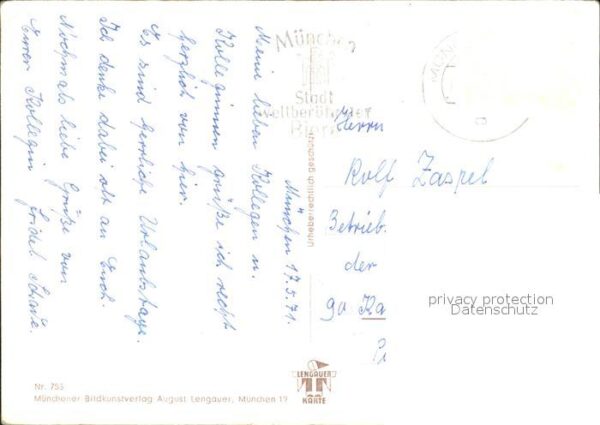 München 17.5.71.
Meine lieben Kollegen u.
Kolleginnen grüße ich recht
herzlich von hier.
Es sind herrliche Urlaubstage.
Ich denke dabei oft an Euch.
Nochmals liebe Grüße von
Eurer Kollegin Fridel
München
Stadt
weltberühmter
Biere
Herrn
Rolf Zaspel
Betrieb.
der
90 Ka
Urheberrechtlich geschützt
privacy protection
Datenschutz
LENGAUER
KARTE
Nr. 755
Münchener Bildkunstverlag August Lengauer, München 19